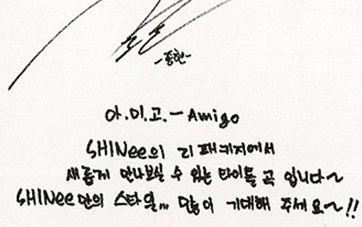 -종현-
아.미.고. - Amigo
SHINee의 리패키지에서
새롭게 만나보실 수 있는 타이틀 곡 입니다~
SHINee만의 스타일... 많이 기대해 주세요~!!